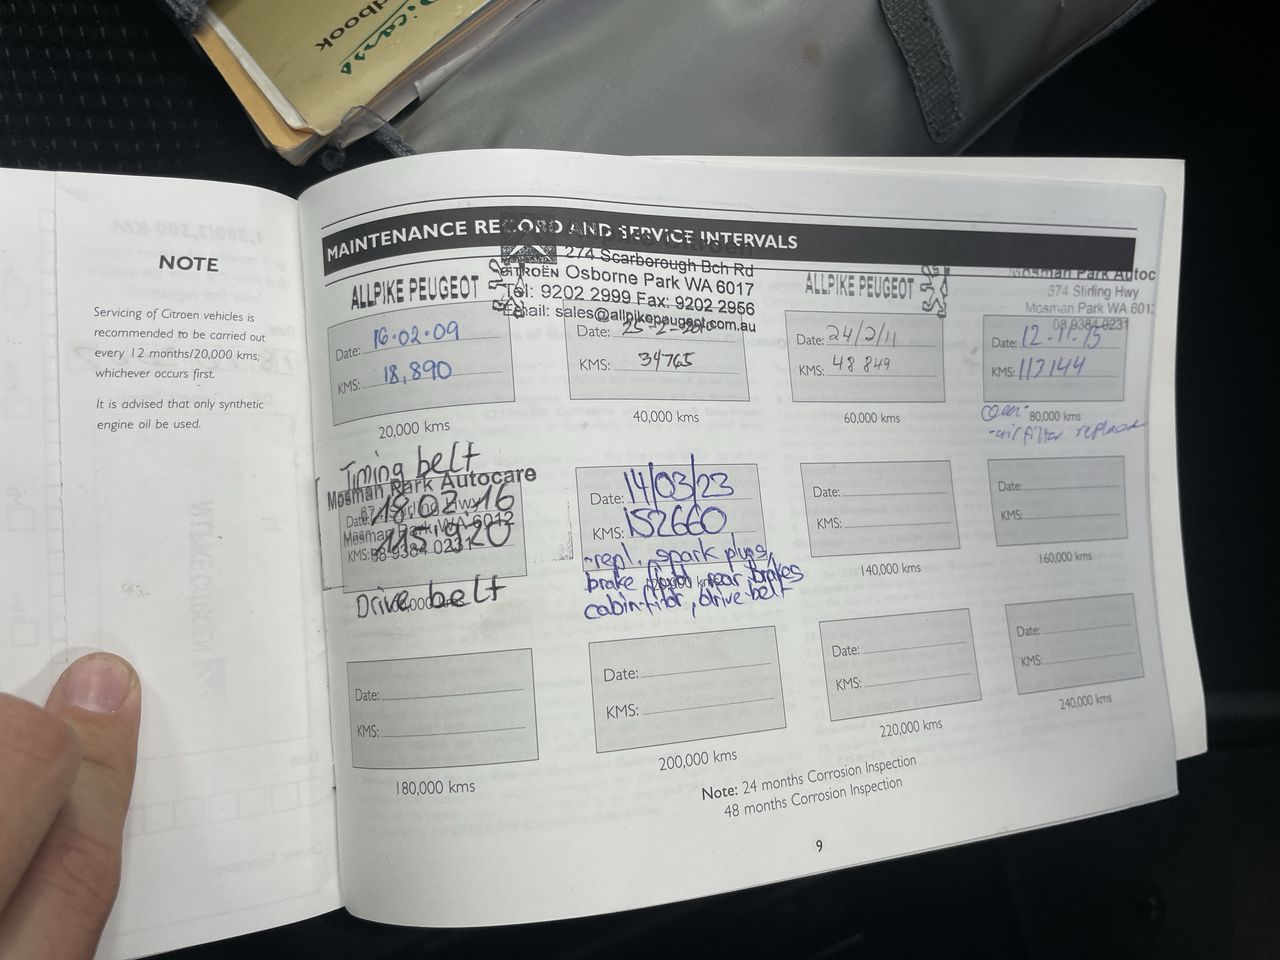 Picasso
Handbook
NOTE
Servicing of Citroen vehicles is
recommended to be carried out
every 12 months/20,000 kms,
whichever occurs first.
It is advised that only synthetic
engine oil be used.
MAINTENANCE RECORD AND SERVICE INTERVALS
ALLPIKE PEUGEOT
Date: 16.02.09
KMS: 18,890
20,000 kms
274 Scarborough Bch Rd
CITROËN Osborne Park WA 6017
Tel: 9202 2999 Fax: 9202 2956
Email: sales@allpikepeugeot.com.au
Date: 25-2-2010
KMS: 34765
40,000 kms
ALLPIKE PEUGEOT
Date: 24/2/11
KMS: 48849
60,000 kms
Mosman Park Autoc
374 Stirling Hwy
Mosman Park WA 601
08 9384 0231
Date: 12.11.15
KMS: 113144
80,000 kms
-air filter replaced
Timing belt
Mosman Park Autocare
Date: 18.02.16
Mosman Park WA 6012
KMS: 115920
08 9384 0231
Drive belt
Date: 14/03/23
KMS: 152660
-repl. spark plugs,
brake fluid, rear brakes
cabin filter, drive belt
Date:
KMS:
140,000 kms
Date:
KMS:
160,000 kms
Date:
KMS:
180,000 kms
Date:
KMS:
200,000 kms
Date:
KMS:
220,000 kms
Date:
KMS:
240,000 kms
Note: 24 months Corrosion Inspection
48 months Corrosion Inspection
9